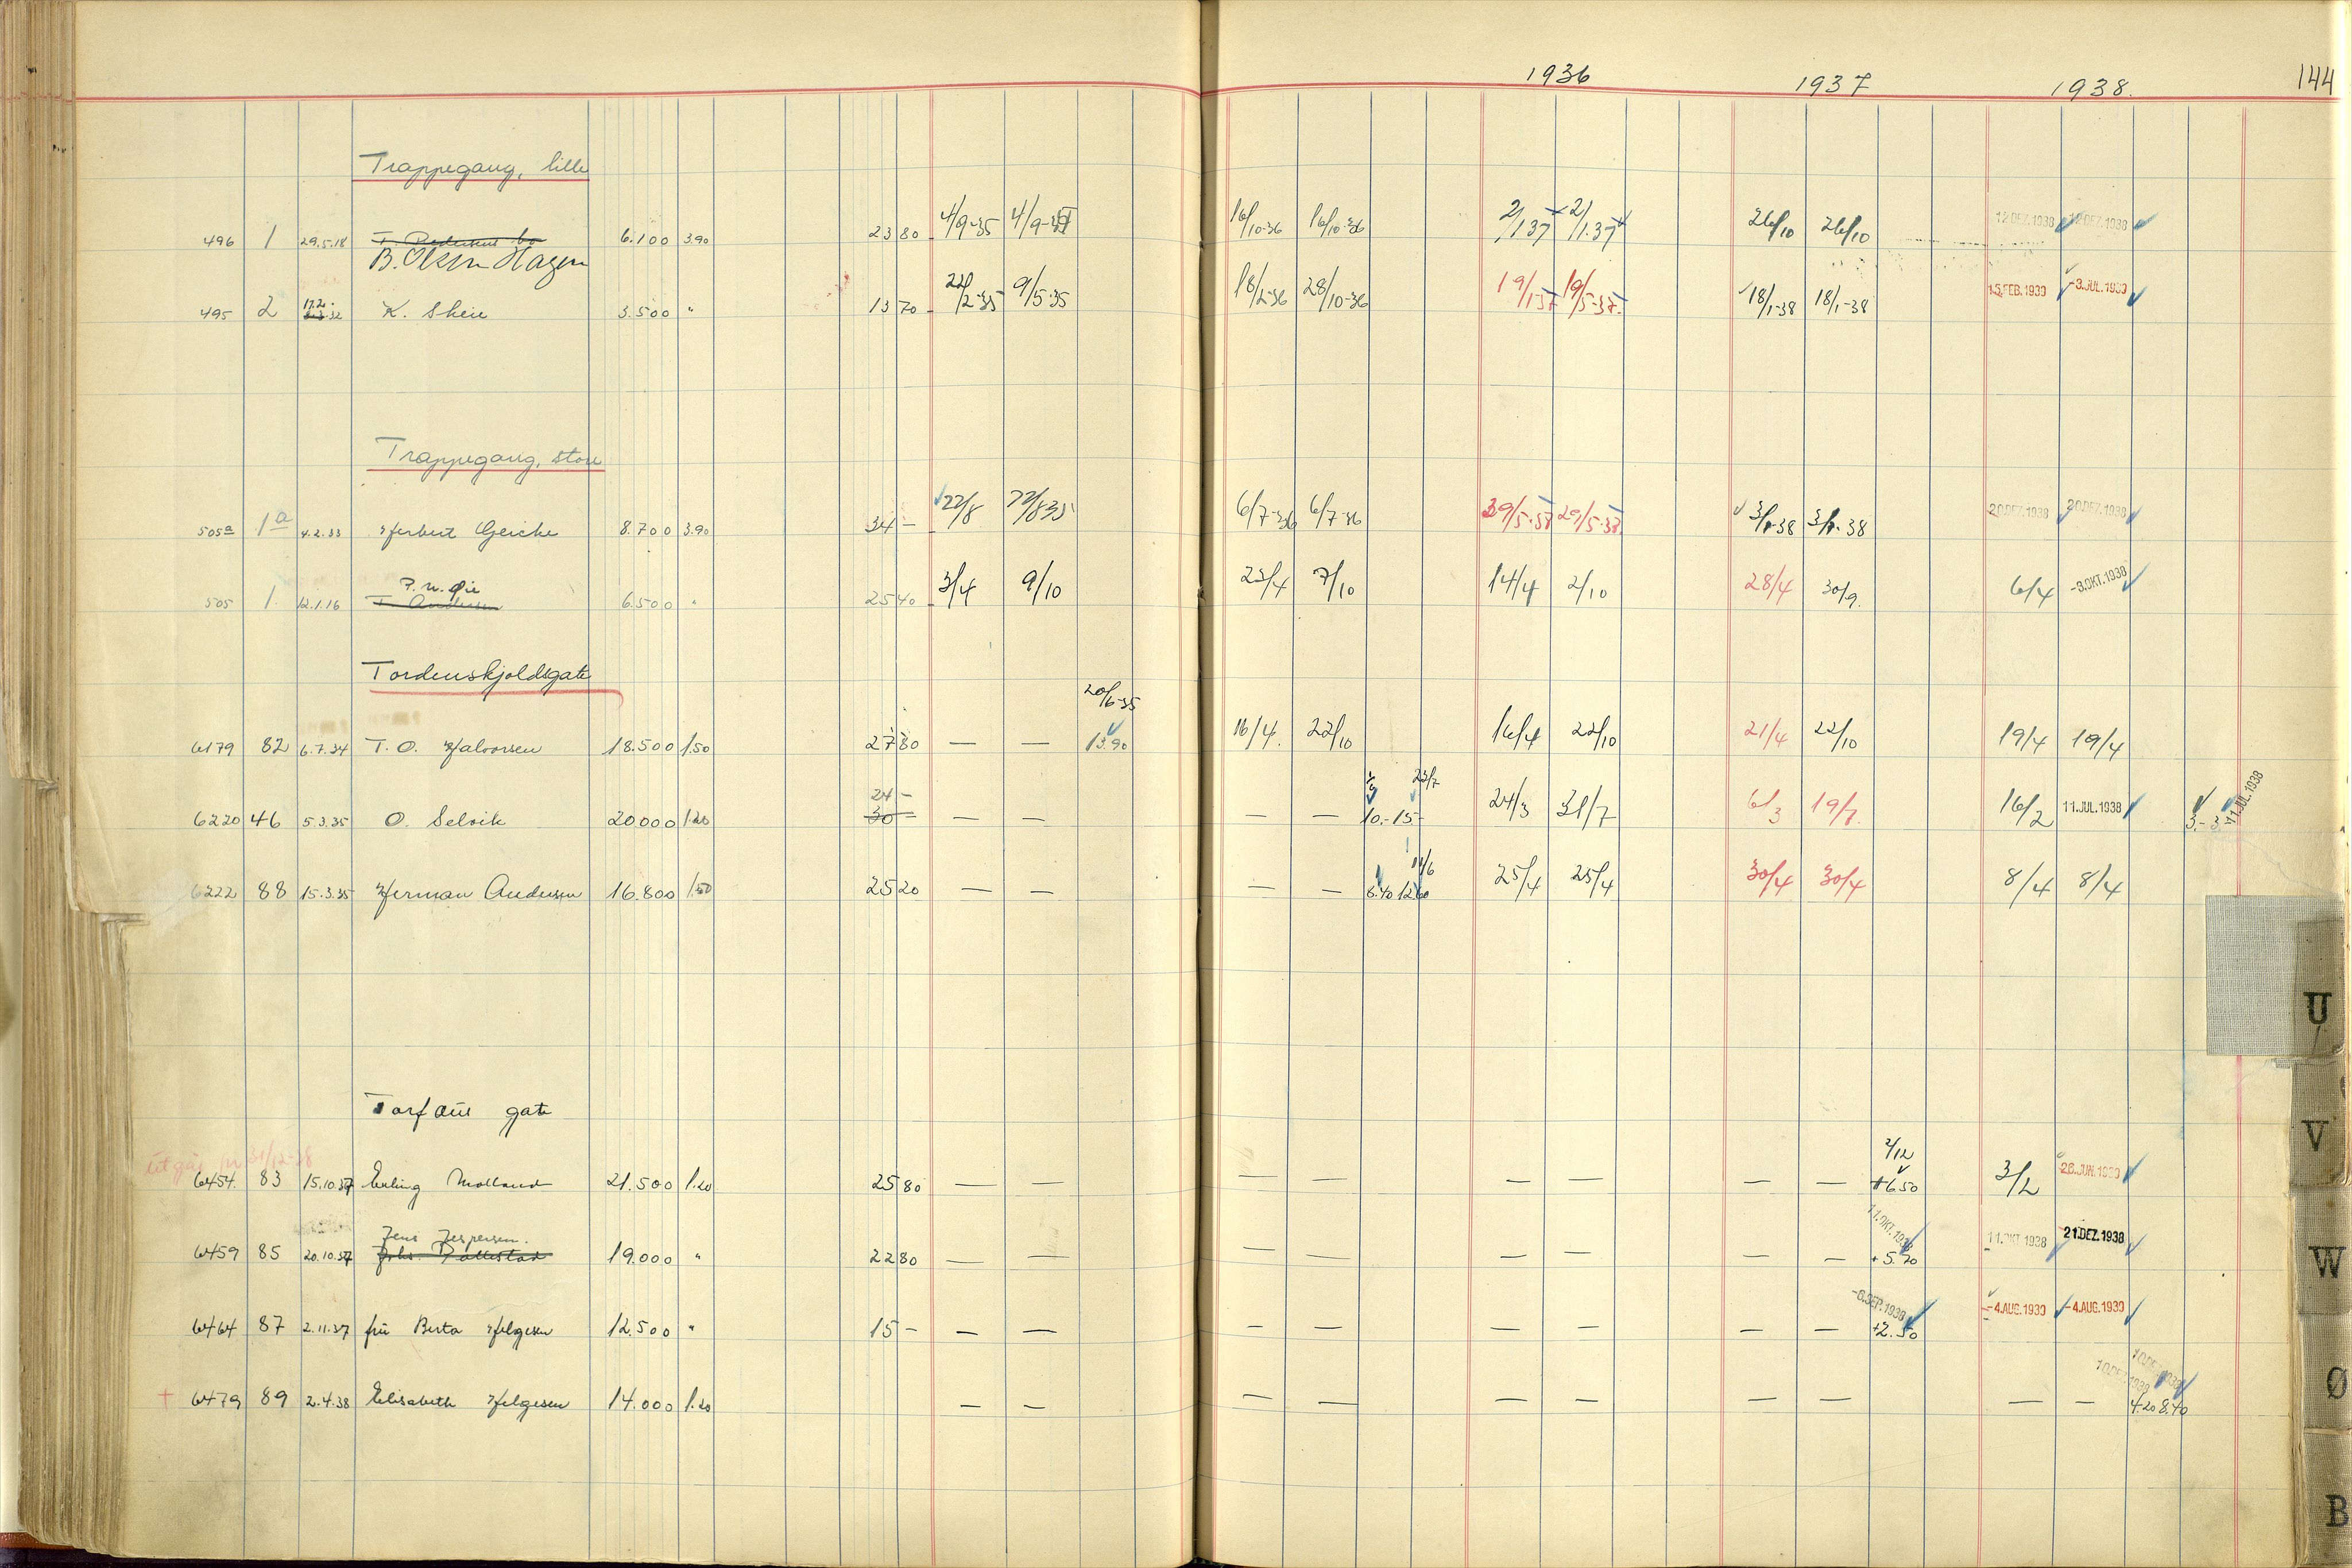 1936 1937 1938. 144
Trappegang, lille
496 1 29.5.18 6.100 3.90 23 80 4/9-35 16/10-36 16/10-36 2/1 37 2/1.37 26/10 26/10 12.DEZ.1938 12.DEZ.1938
B. Olsen Hagen
495 2 17.2. 32 K. Skeie 3.500 " 13 70 22/2-35 9/5-35 18/2-36 28/10-36 19/1-37 19/5-37. 18/1-38 18/1-38
Trappegang, store
505a 1a 4.2.33 Herbert Gericke 8.700 3.90 34 - 22/8 22/8 35 6/7-36 6/7-36 29/5-37 29/5-37 20.DEZ.1938 20.DEZ.1938
505 1 12.1.16 6.500 " 25 40 3/4 9/10 23/4 7/10 14/4 2/10 28/4 30/9. 6/4 -3.OKT.1938
Tordenskjoldsgate
20/6-35
6179 82 6.7.34 T. O. Halvorsen 18.500 1.50 27 80 — — 13.90 16/4. 22/10 16/4 22/10 21/4 22/10 19/4 19/4
24 -
23/7
6220 46 5.3.35 O. Selvik 20.000 1.20 30 - — — — — 10.- 15- 24/3 31/7 6/3 19/7. 16/2 11.JUL.1938 3.- 3.- 11.JUL.1938
11/6
6222 88 15.3.35 Herman Andersen 16.800 1.50 25 20 — — — — 8.40 12.60 25/4 25/4 30/4 30/4 8/4 8/4
Torfæus gate
31/12-38
2/12
6454 83 15.10.37 Erling Molland 21.500 1.20 25 80 — — — — — — — — +6.50 3/2
Jens Jespersen.
11.OKT.1938
6459 85 20.10.37 19.000 " 22 80 — — — — — — — — + 5.70 11.OKT 1938 21.DEZ.1938
-6.SEP.1938
6464 87 2.11.37 fru Berta Helgesen 12.500 " 15 - — — — — — — — — +2.50 -4.AUG.1939 -4.AUG.1939
10.DEZ.1938 10.DEZ.1938
+ 6479 89 2.4.38 Elisabeth Helgesen 14.000 1.20 — — — — — — — — — — 4.20 8.40
U
V
W
Ø
B